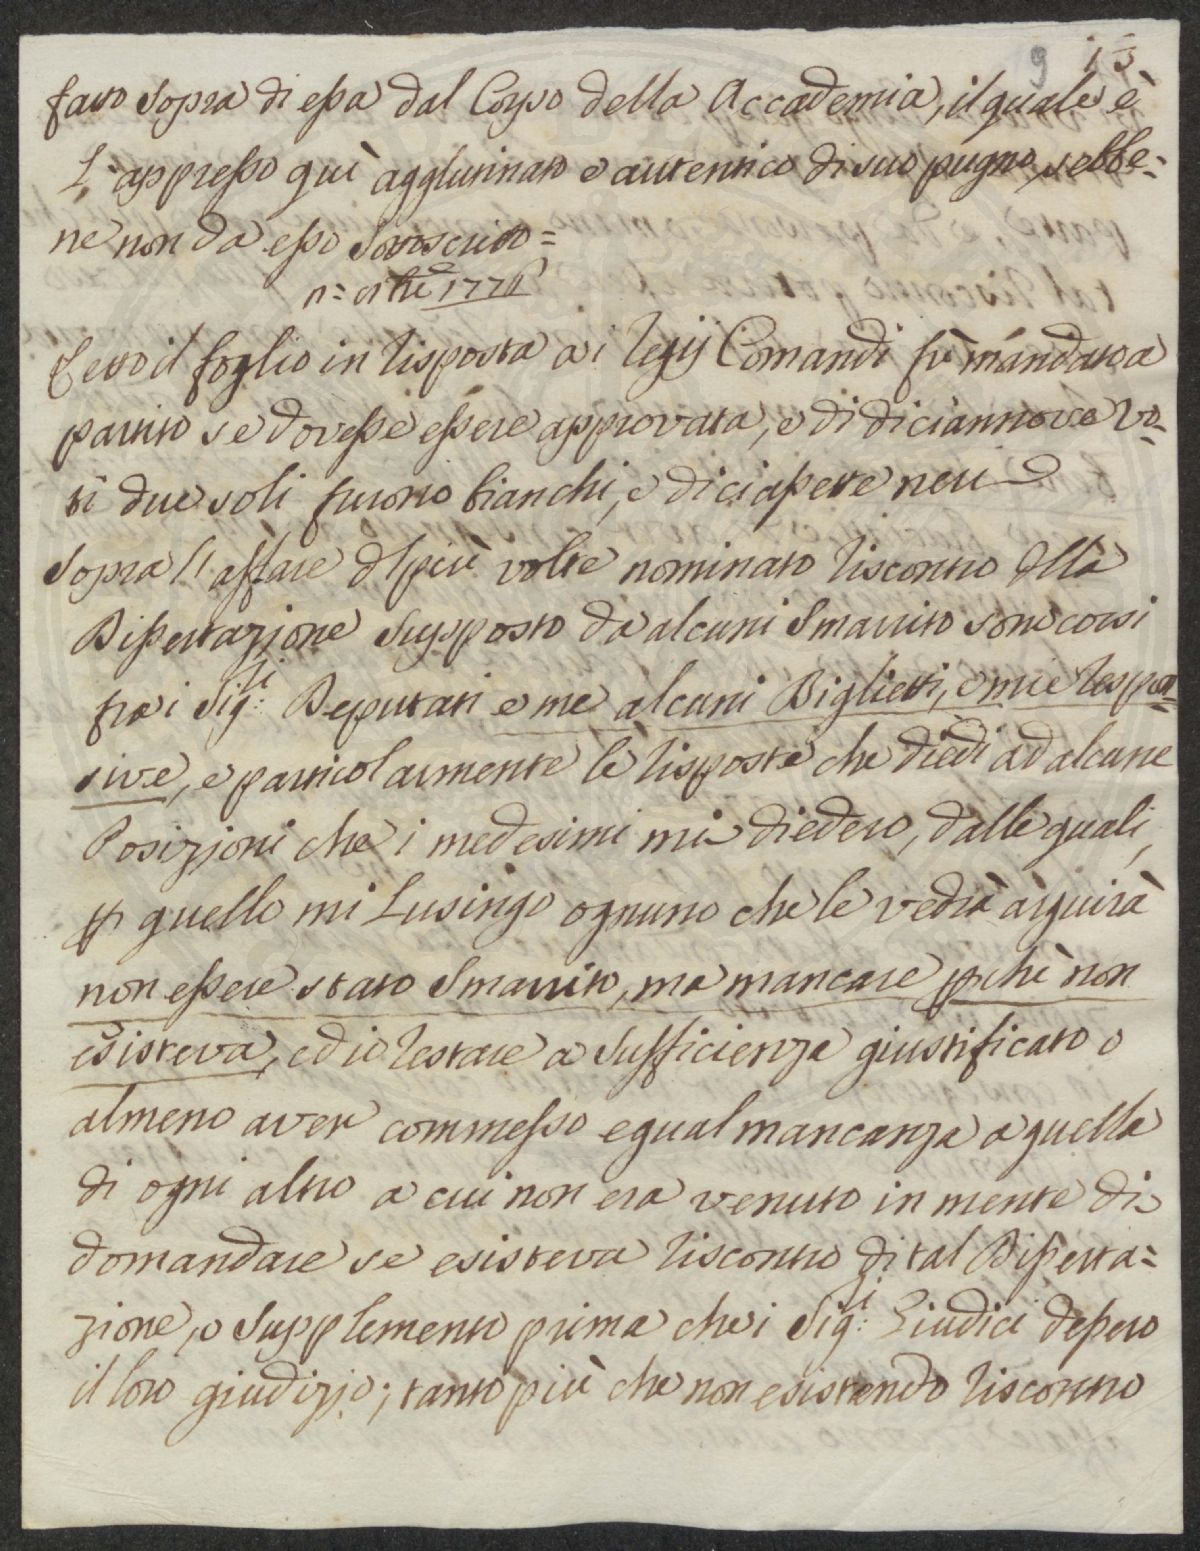 9 13
fatto sopra di essa dal Corpo della Accademia, il quale è
L'appresso quì agglutinato e autentico di suo pugno, sebbe=
ne non da esso sottoscritto=
Letto il foglio in risposta ai Regij Comandi fù mandato a
partito se dovesse essere approvata, e di diciannove Vo=
ti due soli furono bianchi, e diciassette neri
Sopra l'affare dl più volte nominato riscontro della
Dissertazione supposto da alcuni smarrito sono corsi
fra i Sig:ri Deputati e me alcuni Biglietti, e mie respon=
sive, e particolarmente le risposte che diedi ad alcune
Posizioni che i medesimi mi diedero, dalle quali,
p quello mi Lusingo ognuno che le vedrà arguirà
non essere stato smarrito, ma mancare pchè non
esisteva, ed io restare a sufficienza giustificato o
almeno aver commesso egual mancanza a quella
di ogni altro a cui non era venuto in mente di
domandare se esisteva riscontro di tal Disserta=
zione, o supplemento prima che i Sig:ri Giudici dessero
il loro giudizio; tanto più che non esistendo riscontro